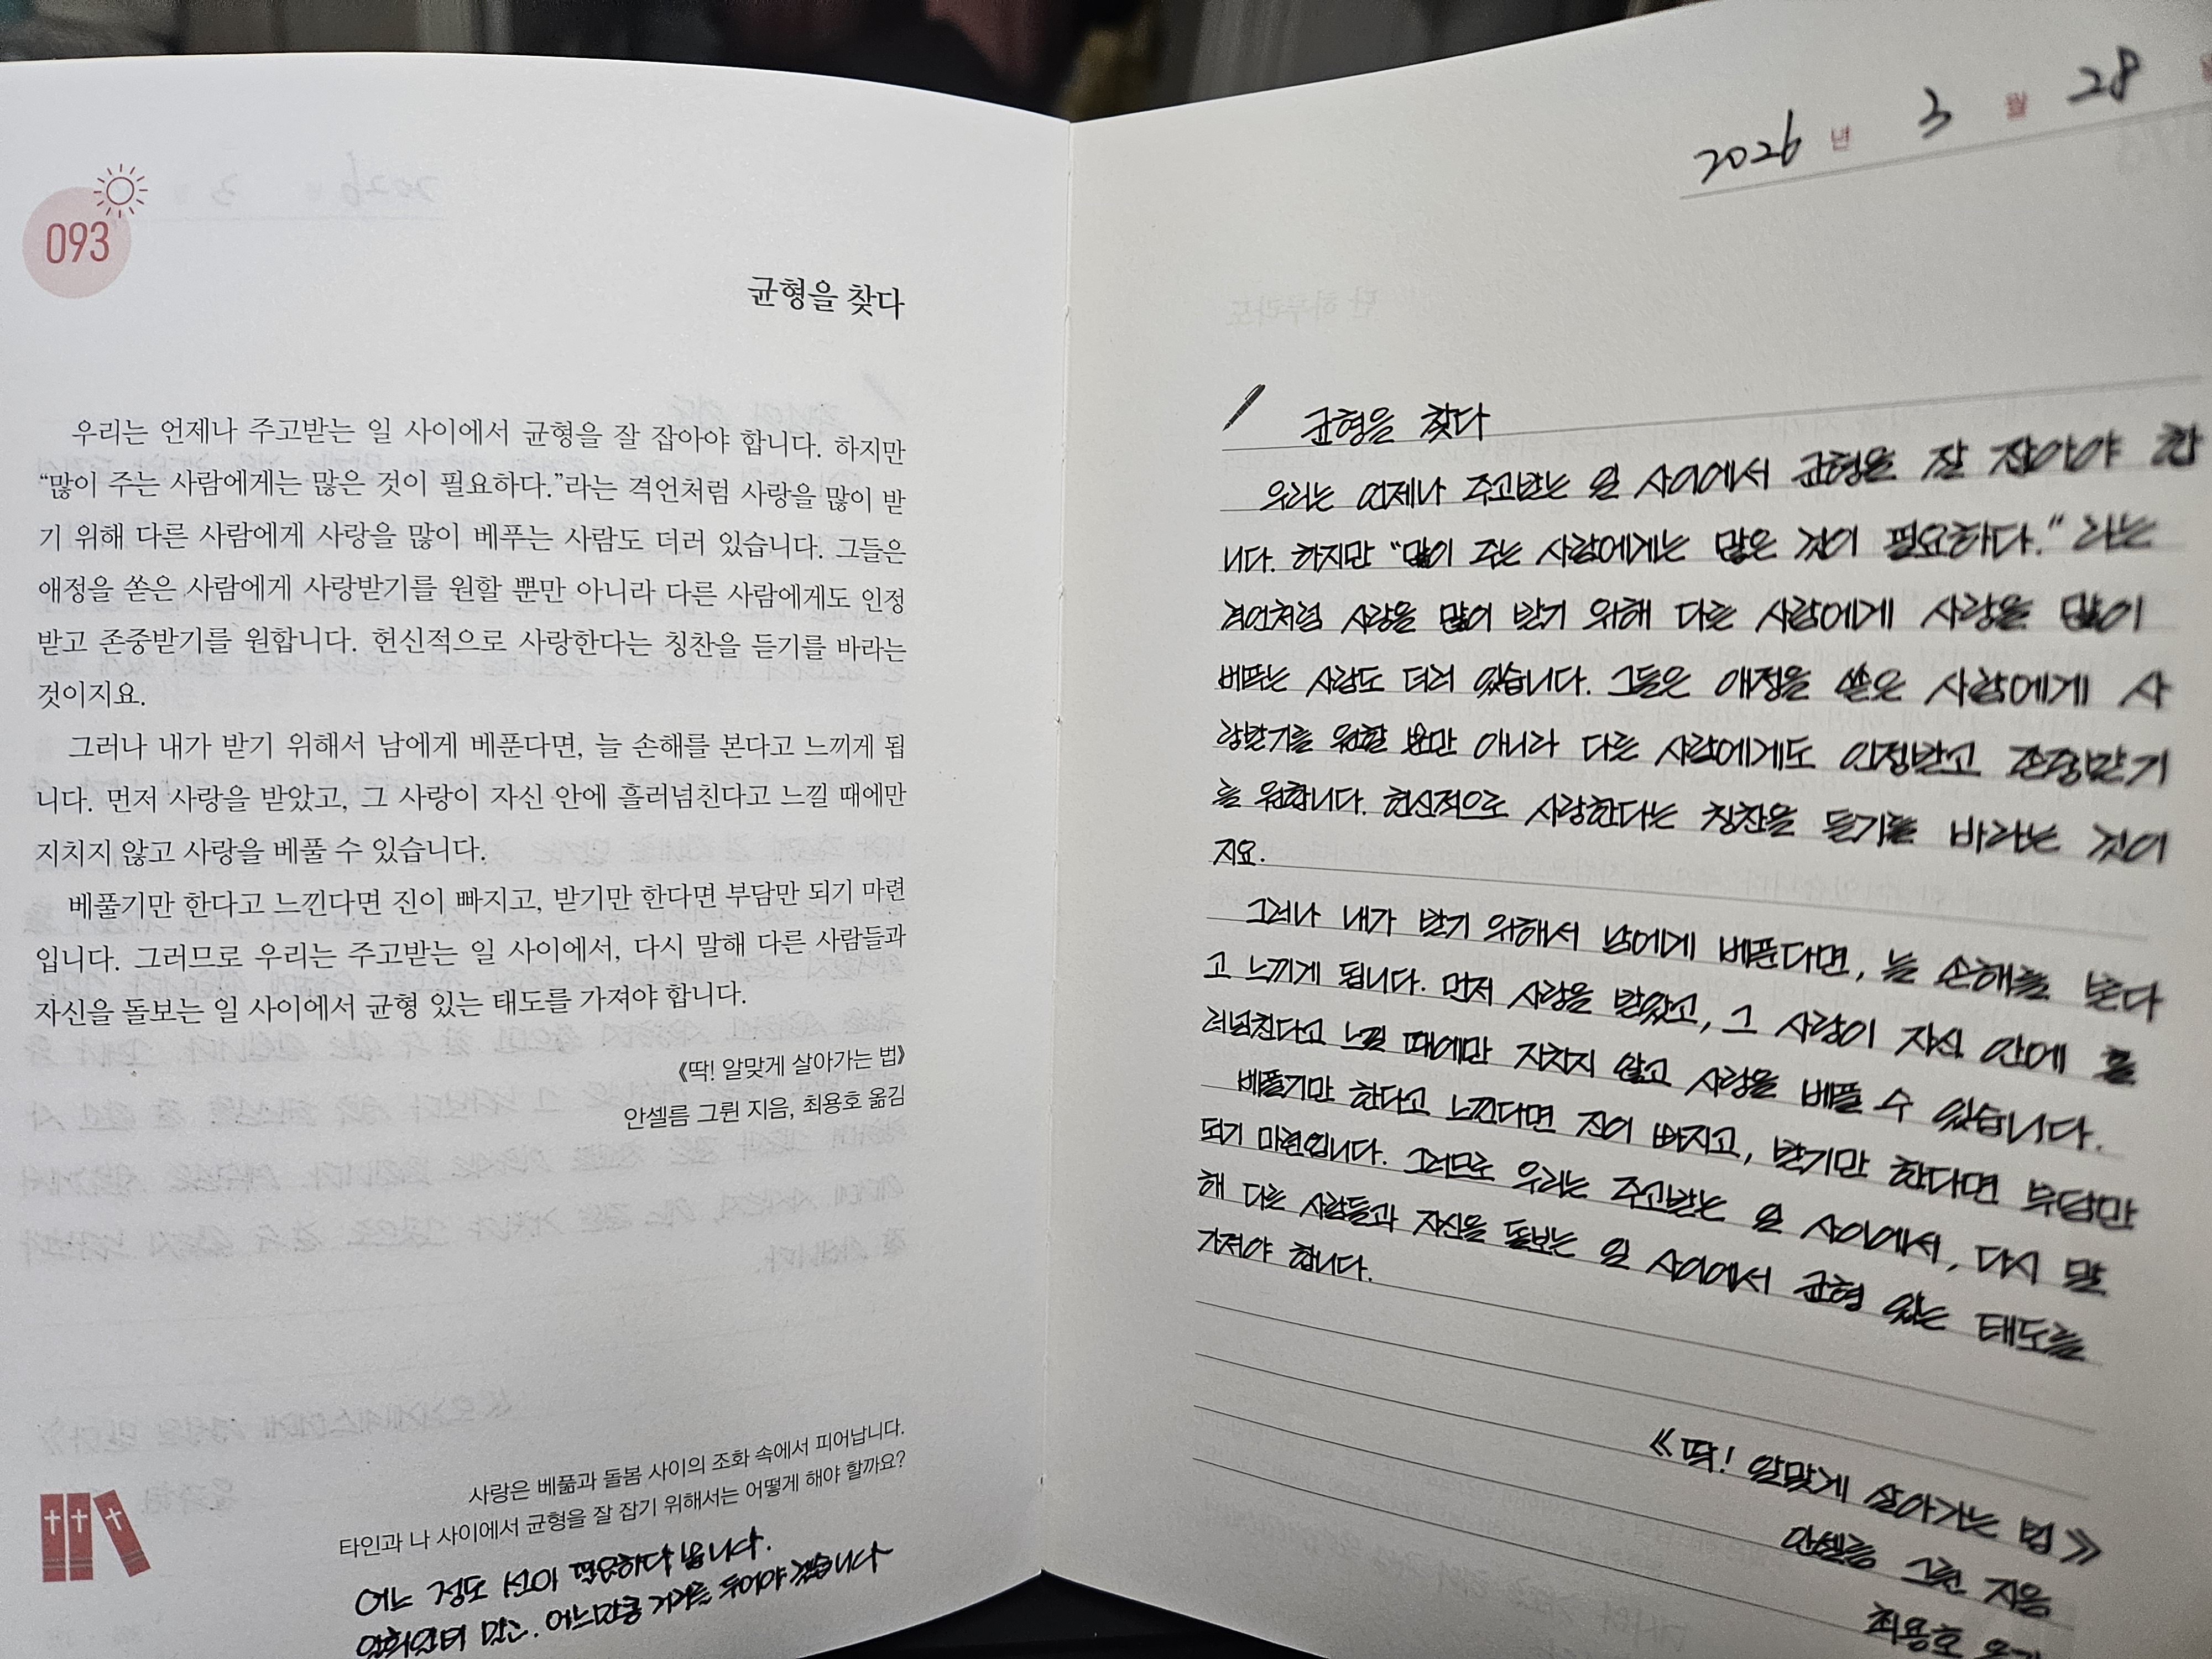 093
균형을 찾다
우리는 언제나 주고받는 일 사이에서 균형을 잘 잡아야 합니다. 하지만
“많이 주는 사람에게는 많은 것이 필요하다.”라는 격언처럼 사랑을 많이 받
기 위해 다른 사람에게 사랑을 많이 베푸는 사람도 더러 있습니다. 그들은
애정을 쏟은 사람에게 사랑받기를 원할 뿐만 아니라 다른 사람에게도 인정
받고 존중받기를 원합니다. 헌신적으로 사랑한다는 칭찬을 듣기를 바라는
것이지요.
그러나 내가 받기 위해서 남에게 베푼다면, 늘 손해를 본다고 느끼게 됩
니다. 먼저 사랑을 받았고, 그 사랑이 자신 안에 흘러넘친다고 느낄 때에만
지치지 않고 사랑을 베풀 수 있습니다.
베풀기만 한다고 느낀다면 진이 빠지고, 받기만 한다면 부담만 되기 마련
입니다. 그러므로 우리는 주고받는 일 사이에서, 다시 말해 다른 사람들과
자신을 돌보는 일 사이에서 균형 있는 태도를 가져야 합니다.
《딱! 알맞게 살아가는 법》
안셀름 그륀 지음, 최용호 옮김
사랑은 베풂과 돌봄 사이의 조화 속에서 피어납니다.
타인과 나 사이에서 균형을 잘 잡기 위해서는 어떻게 해야 할까요?
어느 정도 선이 필요하다 봅니다.
말고. 어느만큼 거리를 두어야겠습니다
2026 년 3 월 28
균형을 찾다
우리는 언제나 주고받는 일 사이에서 균형을 잘 잡아야 합
니다. 하지만 “많이 주는 사람에게는 많은 것이 필요하다.”라는
격언처럼 사랑을 많이 받기 위해 다른 사람에게 사랑을 많이
베푸는 사람도 더러 있습니다. 그들은 애정을 쏟은 사람에게 사
랑받기를 원할 뿐만 아니라 다른 사람에게도 인정받고 존중받기
를 원합니다. 헌신적으로 사랑한다는 칭찬을 듣기를 바라는 것이
지요.
그러나 내가 받기 위해서 남에게 베푼다면, 늘 손해를 본다
고 느끼게 됩니다. 먼저 사랑을 받았고, 그 사랑이 자신 안에 흘
러넘친다고 느낄 때에만 지치지 않고 사랑을 베풀 수 있습니다.
베풀기만 한다고 느낀다면 진이 빠지고, 받기만 한다면 부담만
되기 마련입니다. 그러므로 우리는 주고받는 일 사이에서, 다시 말
해 다른 사람들과 자신을 돌보는 일 사이에서 균형 있는 태도를
가져야 합니다.
《딱! 알맞게 살아가는 법》
안셀름 그륀 지음
최용호 옮김